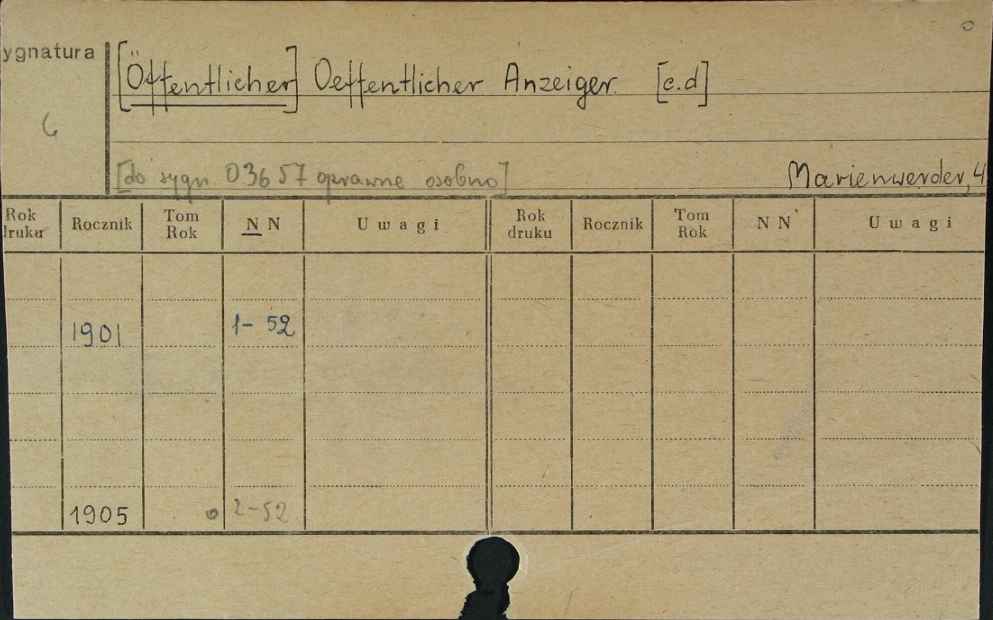 ygnatura
[Öffentlicher] Oeffentlicher Anzeiger [c.d]
[do sygn 03657 oprawne osobno]
Marienwerder, 4
Rok druku Rocznik Tom Rok N N Uwagi Rok druku Rocznik Tom Rok N N Uwagi
1901 1-52
1905 2-52